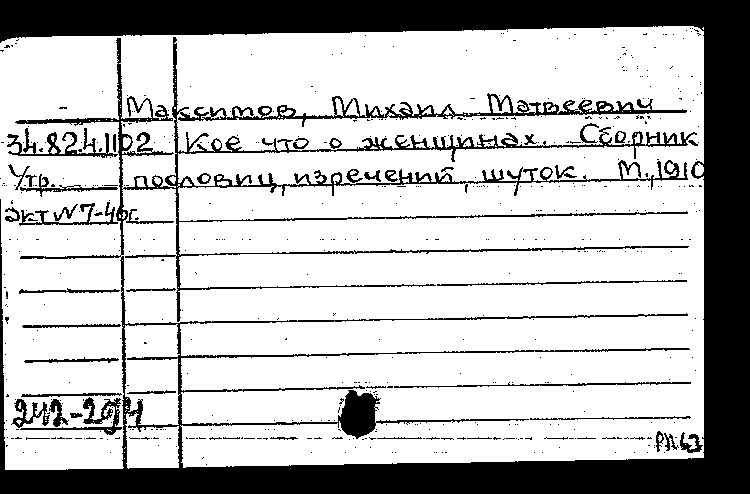 Максимов, Михаил Матвеевич
34.824.1102 Кое что о женщинах. Сборник
Утр. пословиц, изречений, шуток. М., 1910
Акт N 7-46г.
242-294